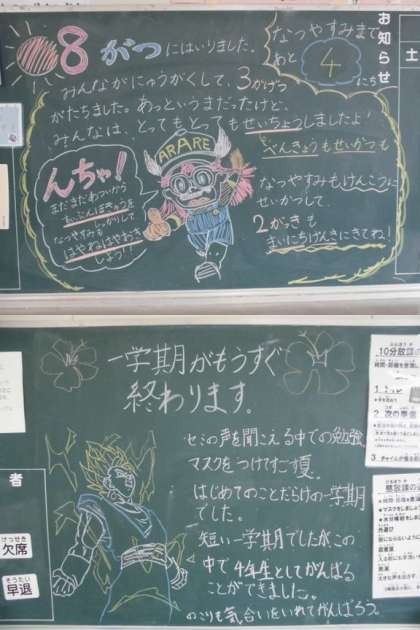 8がつにはいりました。
みんながにゅうがくして、3かげつ
がたちました。あっというまだったけど、
みんなは、とってもとってもせいちょうしましたよ!
べんきょうもせいかつも
なつやすみまで
あと
4
にち
お知らせ
土
ARARE
んちゃ!
まだまだあついから
すいぶんほきゅうを
しっかりして
なつやすみも
はやねはやおき
しよう!!
なつやすみもけんこうに
せいかつして、
2がっきも
まいにちげんきにきてね!
一学期がもうすぐ
終わります。
セミの声を聞こえる中での勉強
マスクをつけてすごす夏。
はじめてのことだらけの一学期
でした。
短い一学期でしたが、この
中で4年生としてがんばる
ことができました。
のこりも気合いをいれてがんばろう。
者
けっせき
欠席
そうたい
早退
10分放課の
2 次の準備
3 チャイムが鳴
昼放課の